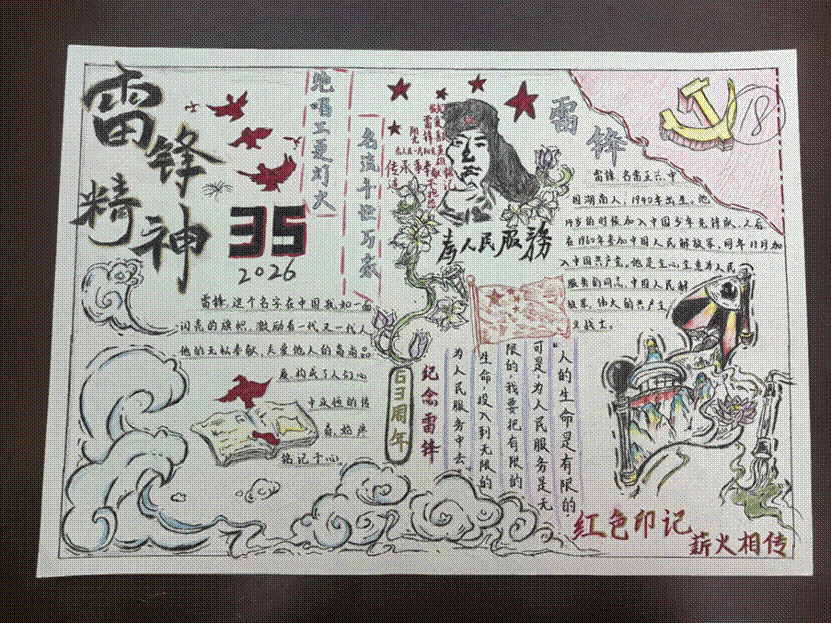 雷锋
精神
35
2026
地唱三更灯火
一名流千世万家
为人民服務
雷锋
18
雷锋,名雷正兴,中
国湖南人,1940年出生。他
在1960年参加中国人民解放军,同年11月加
入中国共产党。他是全心全意为人民
服务的同志,中国人民解
雷锋,这个名字在中国犹如一面
闪亮的旗帜,激励着一代又一代人
他的无私奉献,关爱他人的高尚品
质,构成了人们心
中永恒的传
铭记于心。
63周年
纪念雷锋
"人的生命是有限的
可是,为人民服务是无
限的,我要把有限的
生命,投入到无限的
为人民服务中去"
红色印记
薪火相传